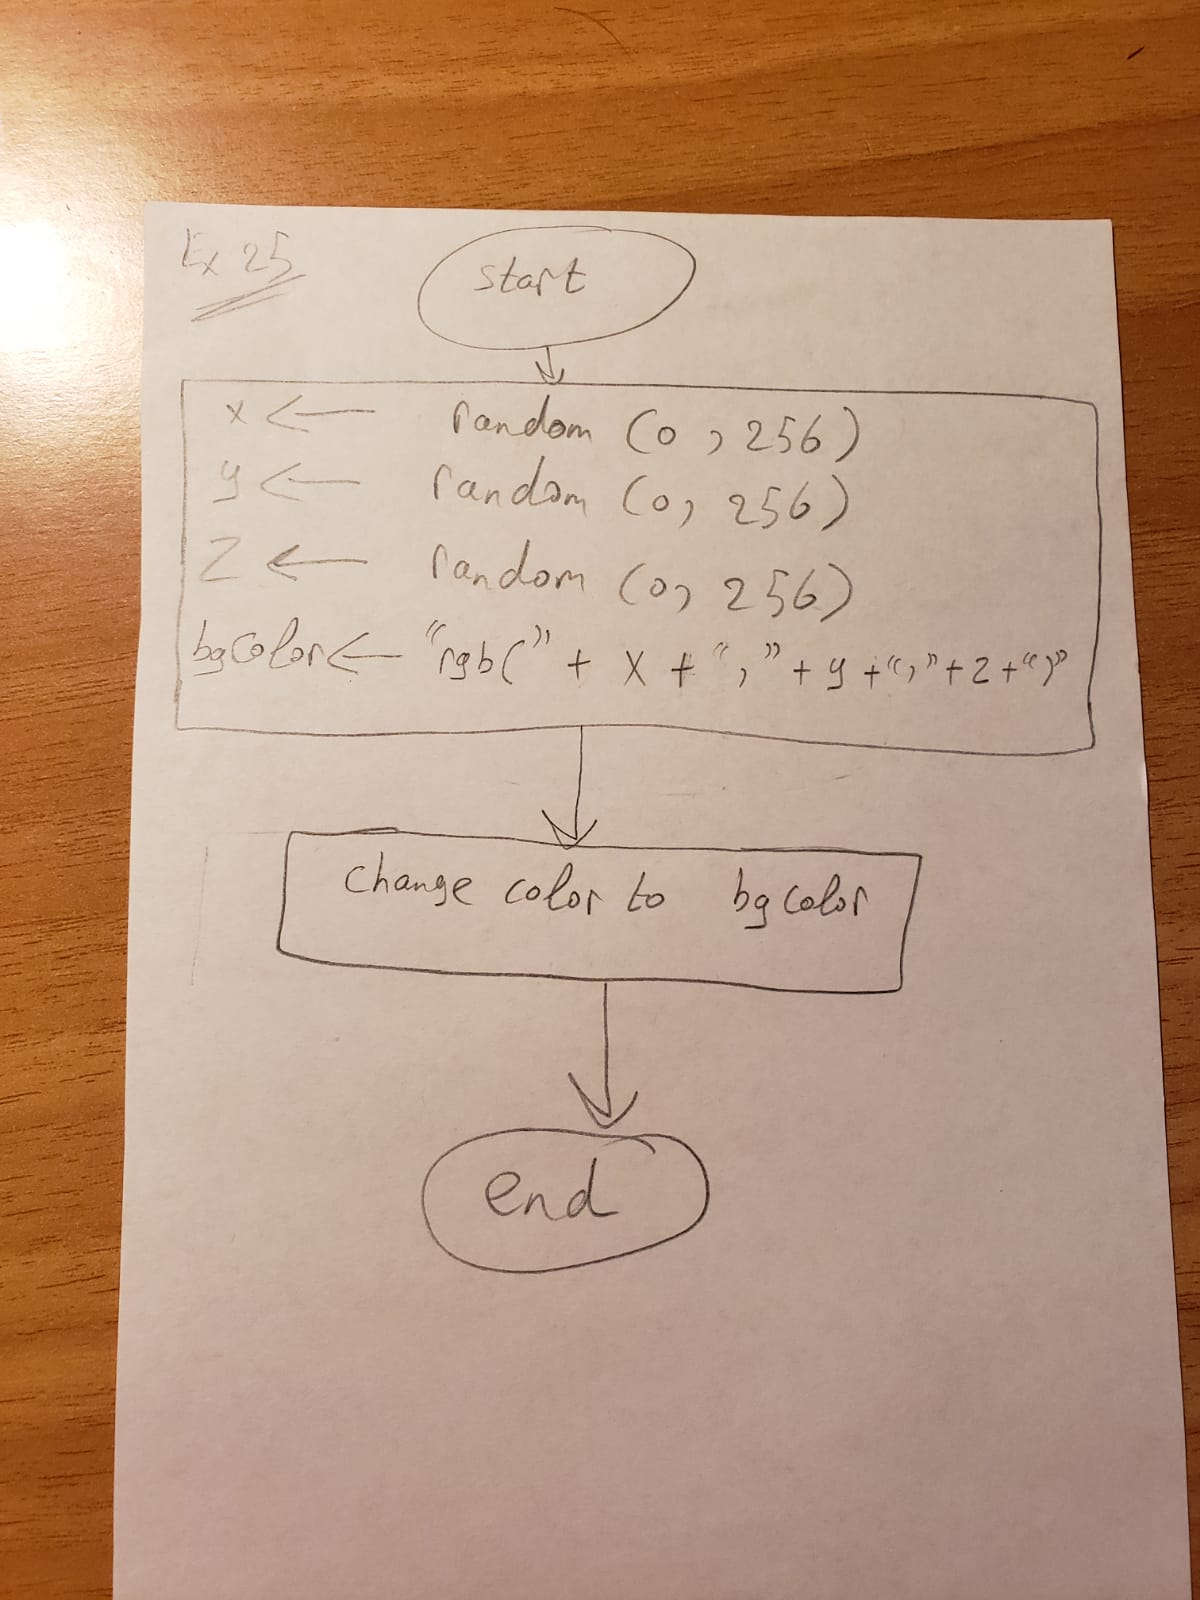 Ex 25
start
x ← random (0, 256)
y ← random (0, 256)
z ← random (0, 256)
bgcolor ← “rgb(” + x + “,” + y + “,” + z + “)”
change color to bgcolor
end